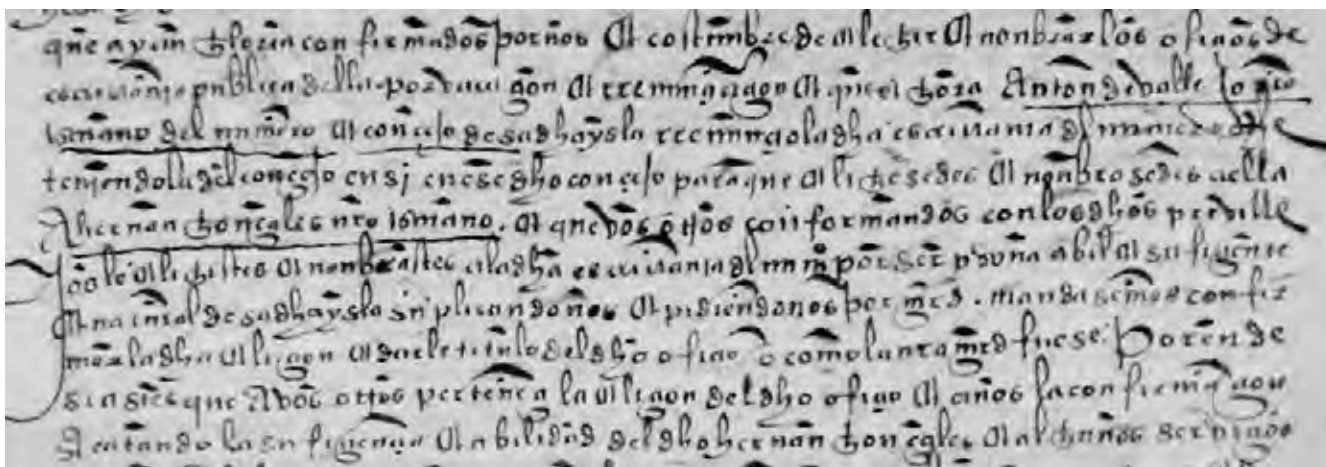 que ayan e logran confirmados por nos e costumbre de elegir e nonbrar los ofiçios de
escriuania publica della por vacaçion e renunçiaçion e que agora Anton de valle logio
escriuano del numero e conçejo desa dha ysla renunçio la dha escriuania del numero
teniendola del conçejo en si en ese dho conçejo para que eligesedes e nonbrasedes a ella
A hernan gonçales nro escriuano. e que vos otros conformandoos con los dhos preuille
gios le elegistes e nonbrastes a la dha escriuania del num por ser persona abil e sufiçiente
e natural desa dha ysla suplicandonos e pidiendonos por mrd. mandasemos confir
mar la dha eleçion e darle titulo del dho ofiçio o como la nra mrd fuese. Por ende
si asi es que A vos otros perteneçe la eleçion del dho ofiçio e a nos la confirmaçion
Acatando la sufiçiençia e abilidad del dho hernan gonçales e algunos seruiçios